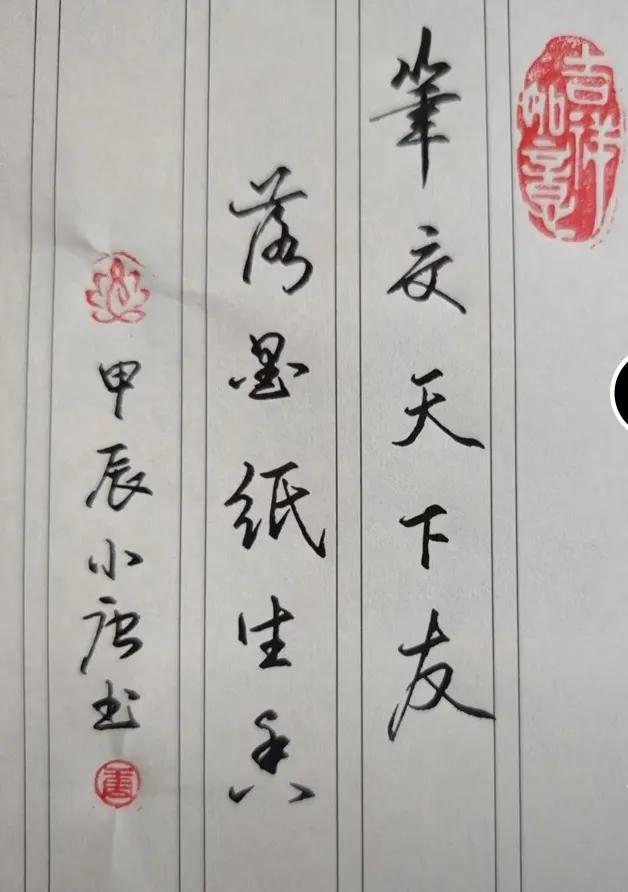 吉祥如意
筆交天下友
落墨纸生香
甲辰小唐书
唐